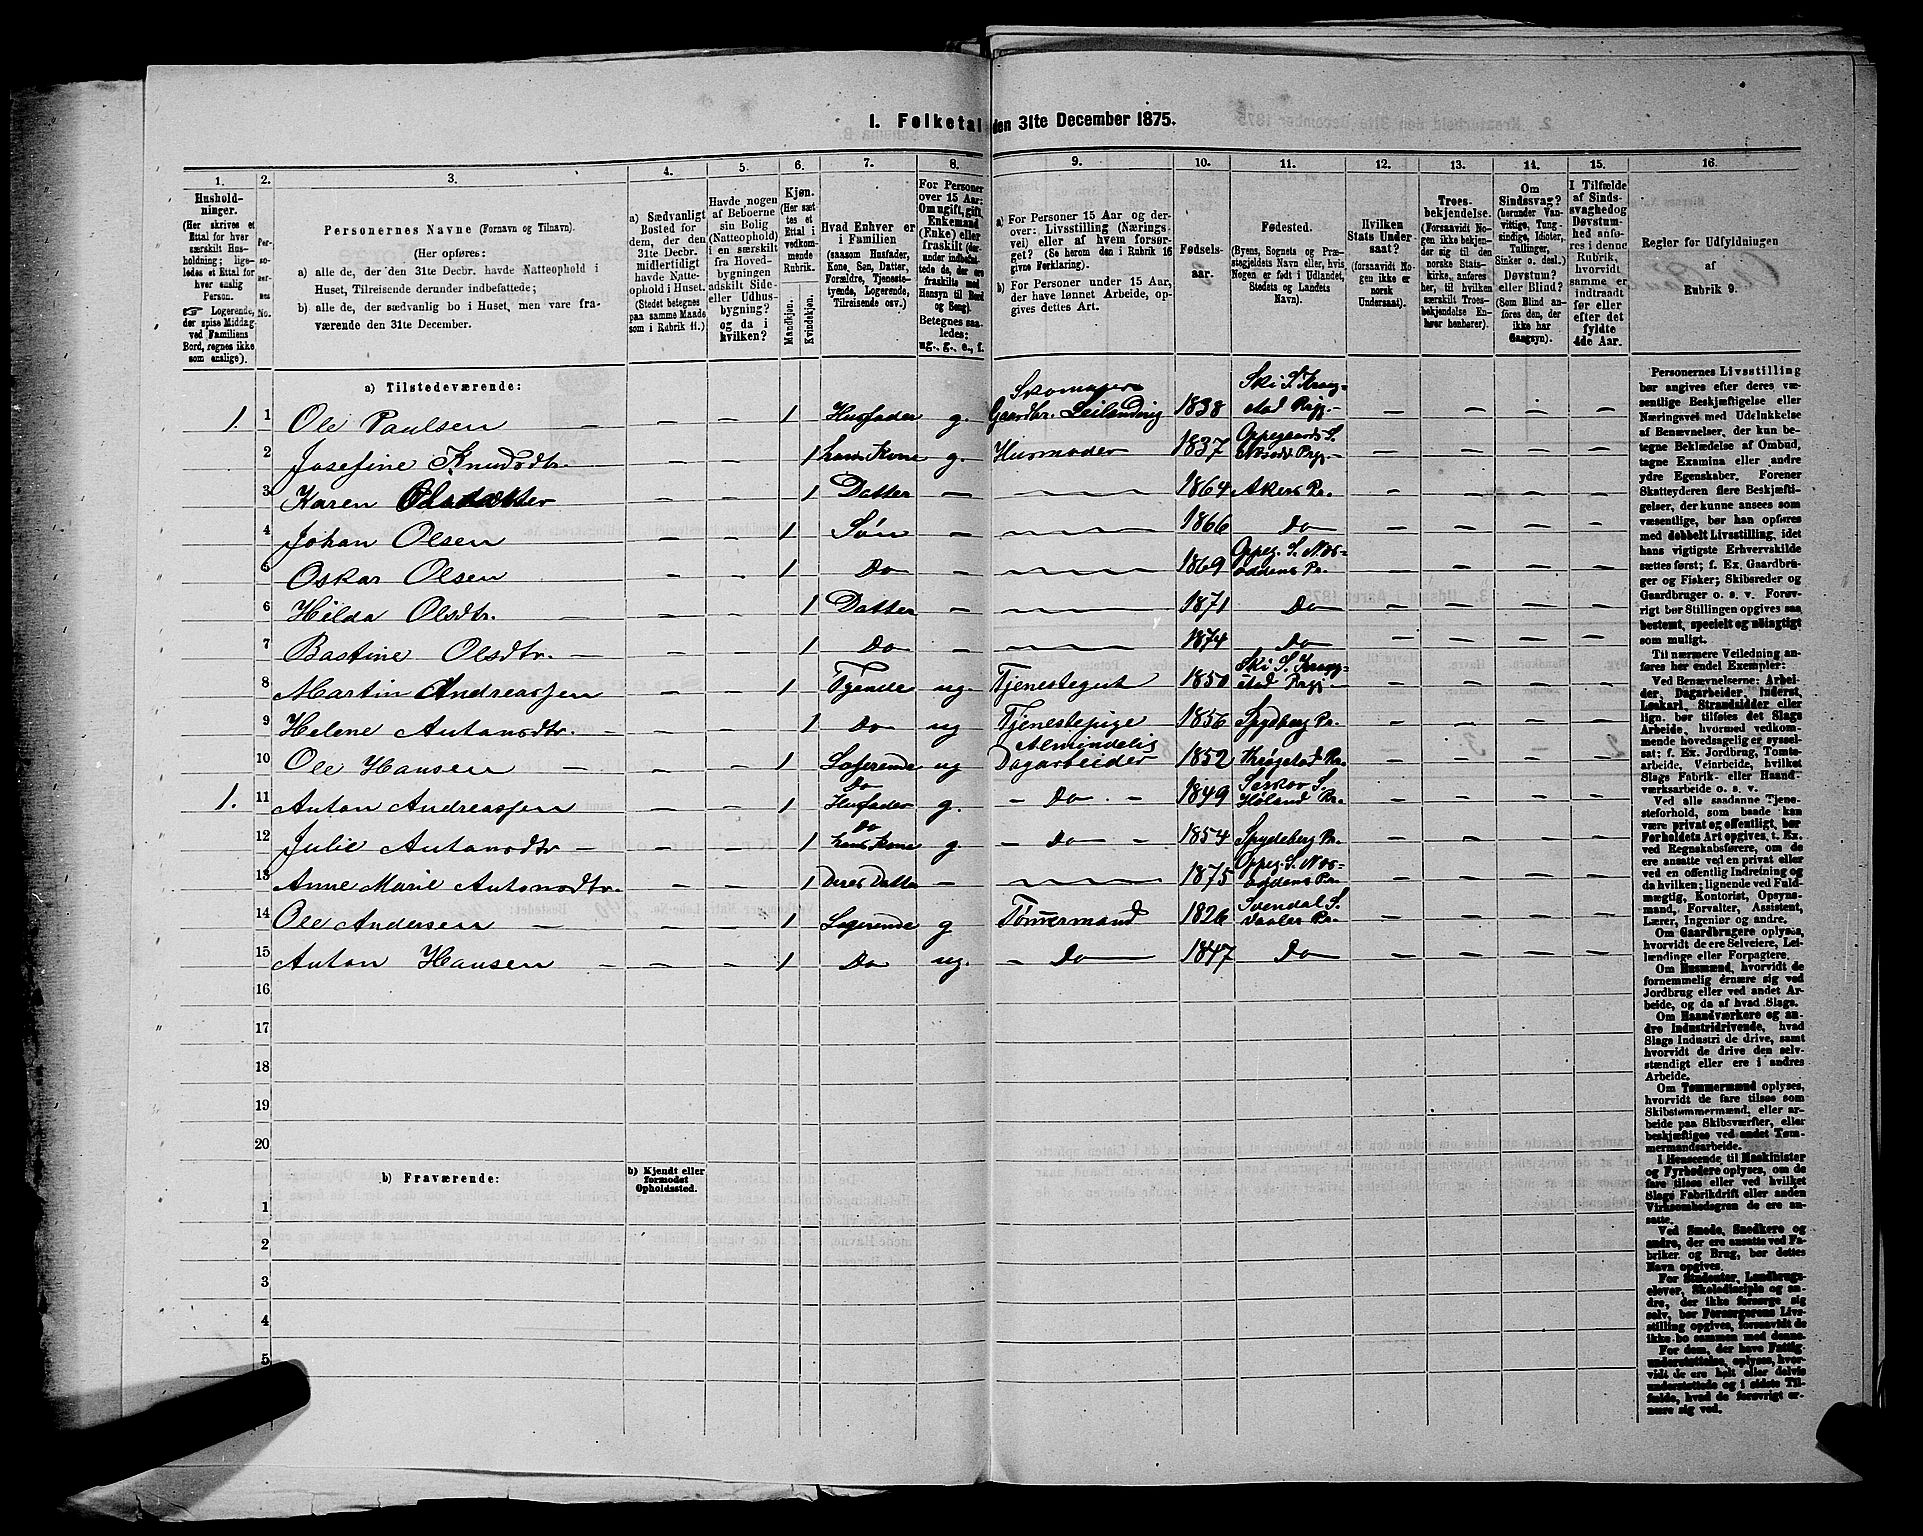 1. Folketal den 31te December 1875.
1. 2. 3. 4. 5. 6. 7. 8. 9. 10. 11. 12. 13. 14. 15. 16.
Hushold-
ninger.
(Her skrives et
Ettal for hver
særskilt Hus-
holdning; lige-
ledes et Ettal for
hver enslig
Person.
☞ Logerende,
der spise Middag
ved Familiens
Bord, regnes ikke
som enslige).
Per-
so-
ner-
nes
No.
Personernes Navne (Fornavn og Tilnavn).
(Her opføres:
a) alle de, der den 31te Decbr. havde Natteophold i
Huset, Tilreisende derunder indbefattede;
b) alle de, der sædvanlig bo i Huset, men vare fra-
værende den 31te December.
a) Sædvanligt
Bosted for
dem, der den
31te Decbr.
midlertidigt
havde Natte-
ophold i Huset.
(Stedet betegnes
paa samme Maade
som i Rubrik 11.)
Havde nogen
af Beboerne
sin Bolig
(Natteophold)
i en særskilt
fra Hoved-
bygningen
adskilt Side-
eller Udhus-
bygning?
og da i
hvilken?
Kjøn.
(Her sæt-
tes et
Ettal i
vedkom-
mende
Rubrik.
Mandkjøn.
Kvindekjøn.
Hvad Enhver er
i Familien
(saasom Husfader,
Kone, Søn, Datter,
Forældre, Tjeneste-
tyende, Logerende,
Tilreisende osv.)
For Personer
over 15 Aar:
Om ugift, gift,
Enkemand
(Enke) eller
fraskilt (der-
under indbefat-
tede de, der ere
fraskilte med
Hensyn til Bord
og Seng).
Betegnes saa-
ledes:
ug., g., e., f.
a) For Personer 15 Aar og der-
over: Livsstilling (Nærings-
vei) eller af hvem forsør-
get. (Se herom den i Rubrik 16
givne Forklaring).
b) For Personer under 15 Aar,
der have lønnet Arbeide, op-
gives dettes Art.
Fødsels-
aar.
Fødested.
(Byens, Sognets og Præ-
stegjeldets Navn eller, hvis
Nogen er født i Udlandet,
Stedets og Landets
Navn).
Hvilken
Stats Under
saat?
(forsaavidt No-
gen ikke er
norsk
Undersaat).
Troes-
bekjendelse.
(Forsaavidt No-
gen ikke bekjen-
der sig til den
norske Stats-
kirke, anføres
her, til hvilken
særskilt Troes-
bekjendelse En-
hver henhører).
Om
Sindssvag?
(herunder Van-
vittige, Tung-
sindige, Idioter,
Tullinger,
Sinker o. desl.)
Døvstum?
eller Blind?
(Som Blind an-
føres den, der
ikke har
Gangsyn).
I Tilfælde
af Sinds-
svaghed og
Døvstum-
hed anføres
i denne
Rubrik,
hvorvidt
samme er
indtraadt
før eller
efter det
fyldte
4de Aar.
Regler for Udfyldningen
af
Rubrik 9.
a) Tilstedeværende:
1 1 Ole Paulsen — — — 1 Husfader g. Skomager Gaardbr. Leilending 1838 Ski S. Kraag-stad Prgj. — — — —
2 Josefine Knudsdtr. — — 1 hans Kone g. Husmoder 1837 Oppegaards S. Næsod. Prgj. — — — —
3 Karen Olsdatter — — 1 Datter — — 1864 Akers Pr. — — — —
4 Johan Olsen — — 1 Søn — — 1866 Do — — — —
5 Oskar Olsen — — 1 Do — — 1869 Oppeg. S. Næs-oddens Pr. — — — —
6 Hilda Olsdtr. — — — 1 Datter — — 1871 Do — — — —
7 Bastine Olsdtr. — — — 1 Do — — 1874 Do — — — —
8 Martin Andreassen — — 1 Tyende ug. Tjenestegut 1850 Ski S. Kraag-stad Prgj. — — — —
9 Helene Antonsdtr. — — — 1 Do ug Tjenestepige 1856 Spydberg Pr. — — — —
10 Ole Hansen — — — 1 Logerende ug Almindelig Dagarbeider 1852 Krogstad Pr. — — — —
1. 11 Anton Andreassen — — 1 Do Husfader g. — Do. — 1849 S. Høland Pr. — — — —
12 Julie Antonsdtr — — — 1 Do hans Kone g — Do — 1854 Spydeberg Pr. — — — —
13 Anne Marie Antonsdtr. — — 1 Deres Datter — — 1875 Oppeg. S. Næs-oddens Pr. — — — —
14 Ole Andersen — — — 1 Logerende g Tømmermand 1826 Svendal S. Vaaler Pr. — — — —
15 Anton Hansen — — — 1 Do ug. — Do — 1847 Do — — — —
16
17
18
19
20
b) Fraværende:
b) Kjendt eller
formodet
Opholdssted.
1
2
3
4
5
Personernes Livsstilling
bør angives efter deres væ-
sentlige Beskjæftigelse eller
Næringsvei med Udelukkelse
af Benævnelser, der kun be-
tegne Beklædelse af Ombud,
tagne Examina eller andre
ydre Egenskaber. Forener
Skatteyderen flere Beskjæfti-
gelser, der kunne ansees som
væsentlige, bør han opføres
med dobbelt Livsstilling, idet
hans vigtigste Erhvervskilde
sættes først; f. Ex. Gaardbru-
ger og Fisker; Skibsreder og
Gaardbruger o. s. v. Forøv-
rigt bør Stillingen opgives saa
bestemt, specielt og nöiagtigt
som muligt.
Til nærmere Veiledning an-
føres her endel Exempler:
Ved Benævnelserne: Arbei-
der, Dagarbeider, Inderst,
Løskarl, Strandsidder eller
lign. bør tilføies det Slags
Arbeide, hvormed vedkom-
mende hovedsagelig er syssel-
sat; f. Ex. Jordbrug, Tomte-
arbeide, Veiarbeide, hvilket
Slags Fabrik- eller Haand-
værksarbeide o. s. v.
Ved alle saadanne Tjene-
steforhold, som baade kan
være privat og offentligt, bør
Forholdets Art opgives, t. Ex.
ved Regnskabsførere, om de
ere ansatte ved en privat eller
ved en offentlig Indretning og
da hvilken; lignende ved Fuld-
mægtig, Kontorist, Opsyns-
mand, Forvalter, Assistent,
Lærer, Ingeniør og andre.
Om Gaardbrugere oplyses,
hvorvidt de ere Selveiere, Lei-
lændinge eller Forpagtere.
Om Husmænd, hvorvidt de
fornemmelig ernære sig ved
Jordbrug eller ved andet Ar-
beide, og da af hvad Slags.
Om Haandværkere og an-
dre Industridrivende, hvad
Slags Industri de drive, samt
hvorvidt de drive den selv-
stændigt eller ere i andres
Arbeide.
Om Tømmermænd oplyses,
hvorvidt de fare tilsøs som
Skibstømmermænd, eller ar-
beide paa Skibsværfter, eller
beskjæftiges ved andet Tøm-
mermandsarbeide.
I Henseende til Maskinister
og Fyrbødere oplyses, om de
fare tilsøs eller ved hvilket
Slags Fabrikdrift eller anden
Virksomhedsgren de ere an-
satte.
Ved Smede, Snedkere og
andre, der ere ansatte ved Fa-
briker og Brug, bør dettes
Navn opgives.
For Studenter, Landbrugs-
elever, Skoledisciple og an-
dre, der ikke forsørge sig
selv, bør Forsørgerens Liv-
stilling opgives, forsaavidt de
ikke bo sammen med denne.
For dem, der have Fattig-
understøttelse, oplyses, hvor-
vidt de ere helt eller delvis
understøttede og i sidste Til-
fælde, hvad de forøvrigt er-
nære sig ved.